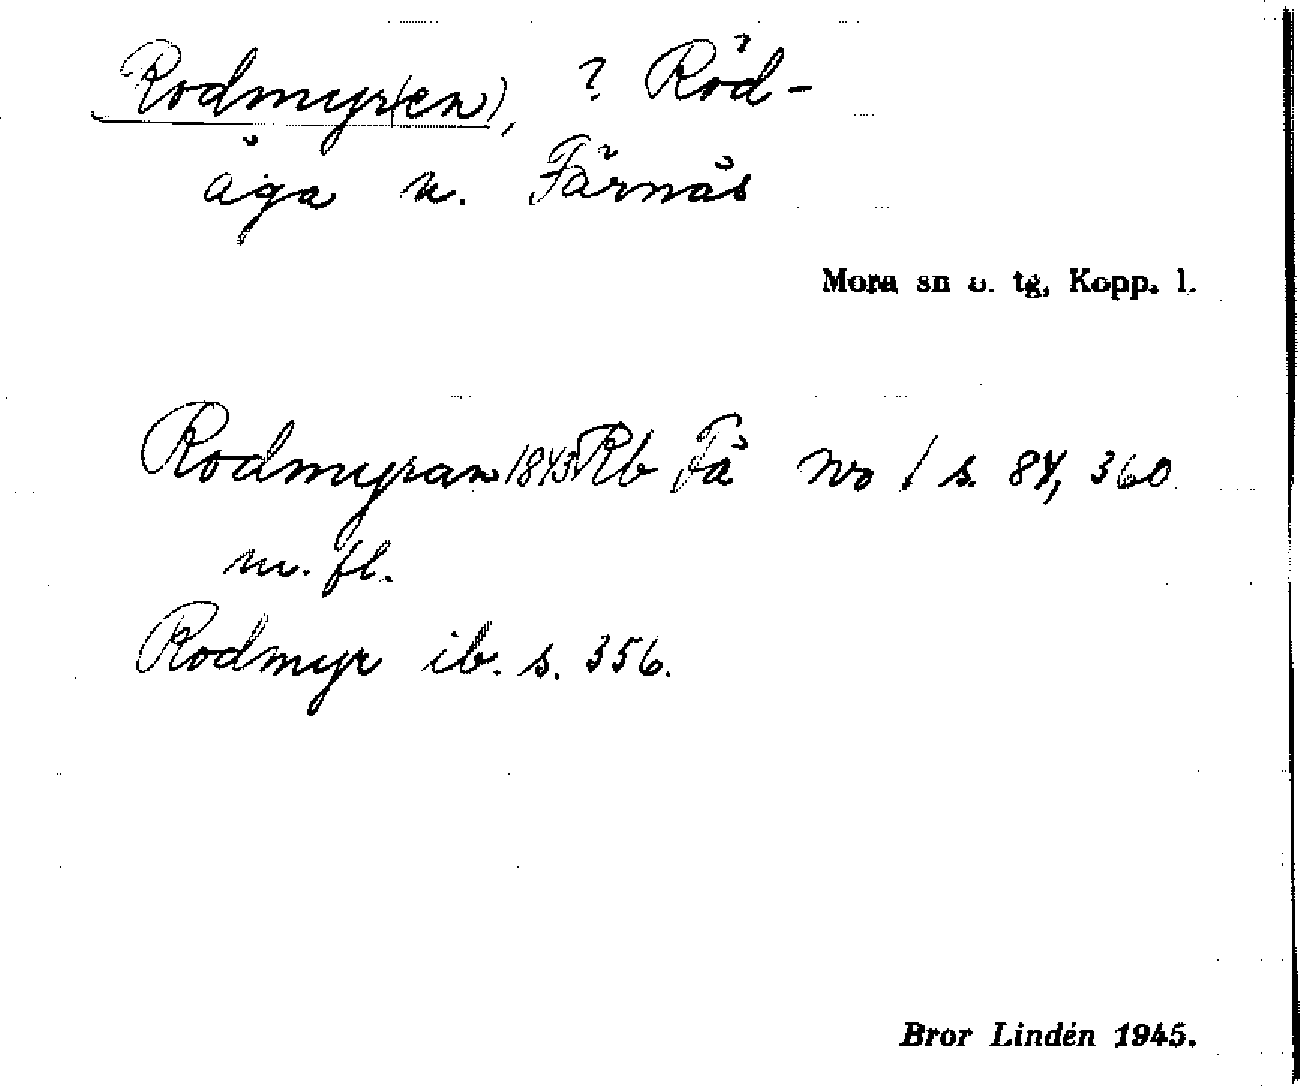 Rodmyr(en), ? Röd-
åga n. Färnäs
Mora sn o. tg, Kopp. l.
Rodmyran 1843 Rb Fä No 1 s. 84, 360
m. fl.
Rodmyr ib. s. 356.
Bror Lindén 1945.